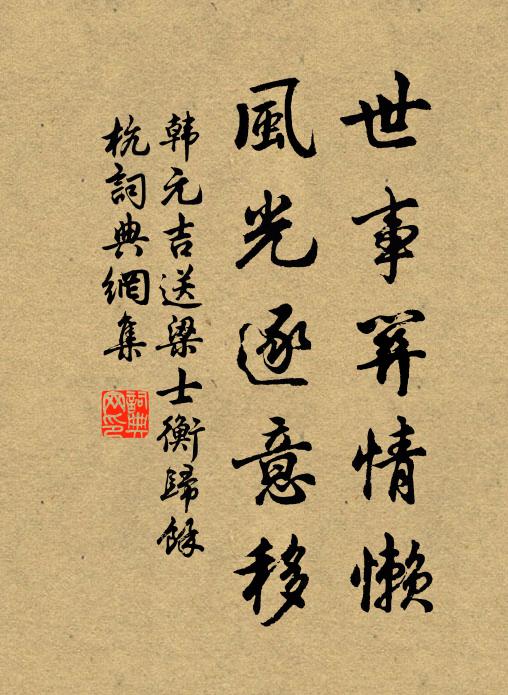 世事関情懶
風光逐意移
韩元吉送梁士衡歸餘
杭詞典網集
詞典网印